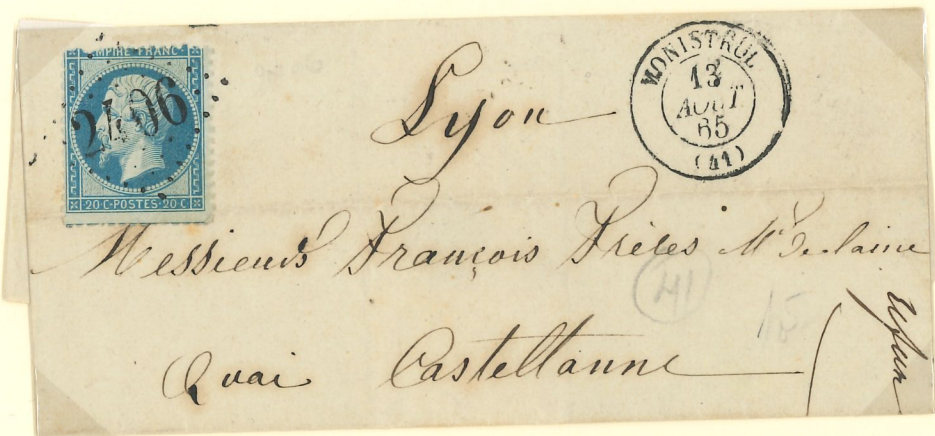 EMPIRE FRANC
2406
20 C·POSTES·20 C
MONISTROL
13
AOUT
65
(41)
Lyon
Messieurs François Frères Md de laine
41
15
Quai Castellanne